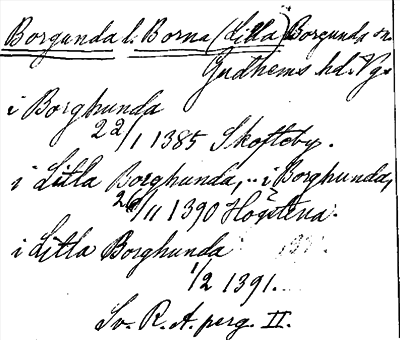 Borgunda l. Borna (Lilla) Borgunda sn.
Gudhems hd. Vgs
i Borghunda
22/1 1385 Skoftoby.
i Litla Borghunda, .. i Borghunda,
/11 1390 Högstena.
i Litla Borghunda
1/2 1391.
Sv. R. A. perg. II.